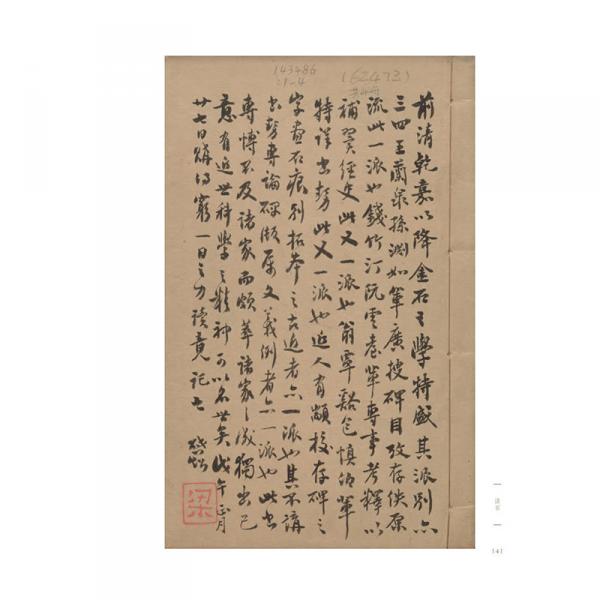 143486
:1-4
(62473)
前清乾嘉以降金石之學特盛其派別亦
三四王蘭泉孫淵如輩廣搜碑目攷存佚原
流此一派也錢竹汀阮雲臺輩專事考釋以
補翼經史此又一派也翁覃谿包慎伯輩
特詳書勢此又一派也近人有顓校存碑之
字畫石痕別拓本之古近者亦一派也其不講
書勢專論碑版属文義例者亦一派也此書
專博不及諸家而頗萃諸家之成獨出己
意有近世科學之精神可以名世矣戊午正月
廿七日購得窮一日之力讀竟記之 啟超
梁
141